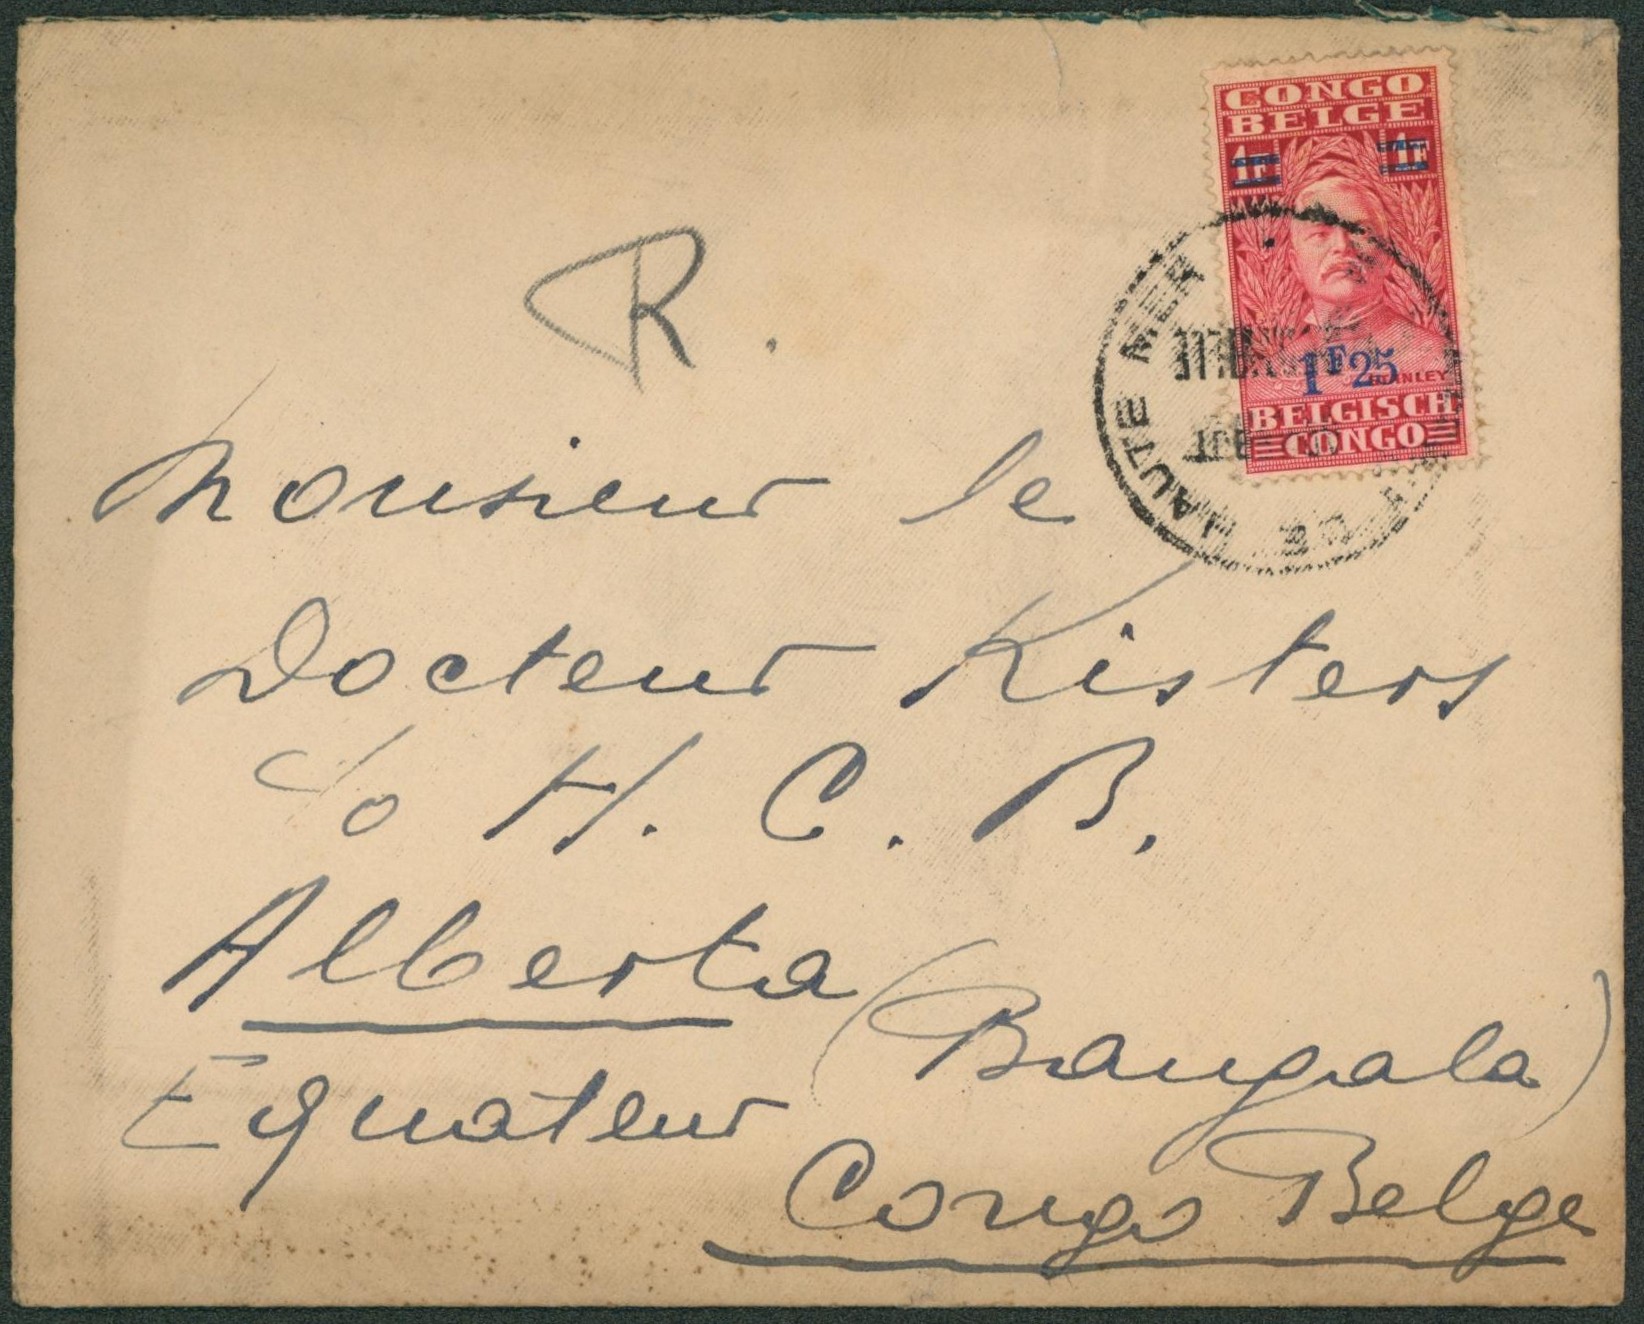 CONGO
BELGE
1F 1F
1F25
STANLEY
BELGISCH
CONGO
HAUTE MER
R.
Monsieur le
Docteur Kisters
c/o H. C. B.
Alberta
(Bangala)
Equateur
Congo Belge